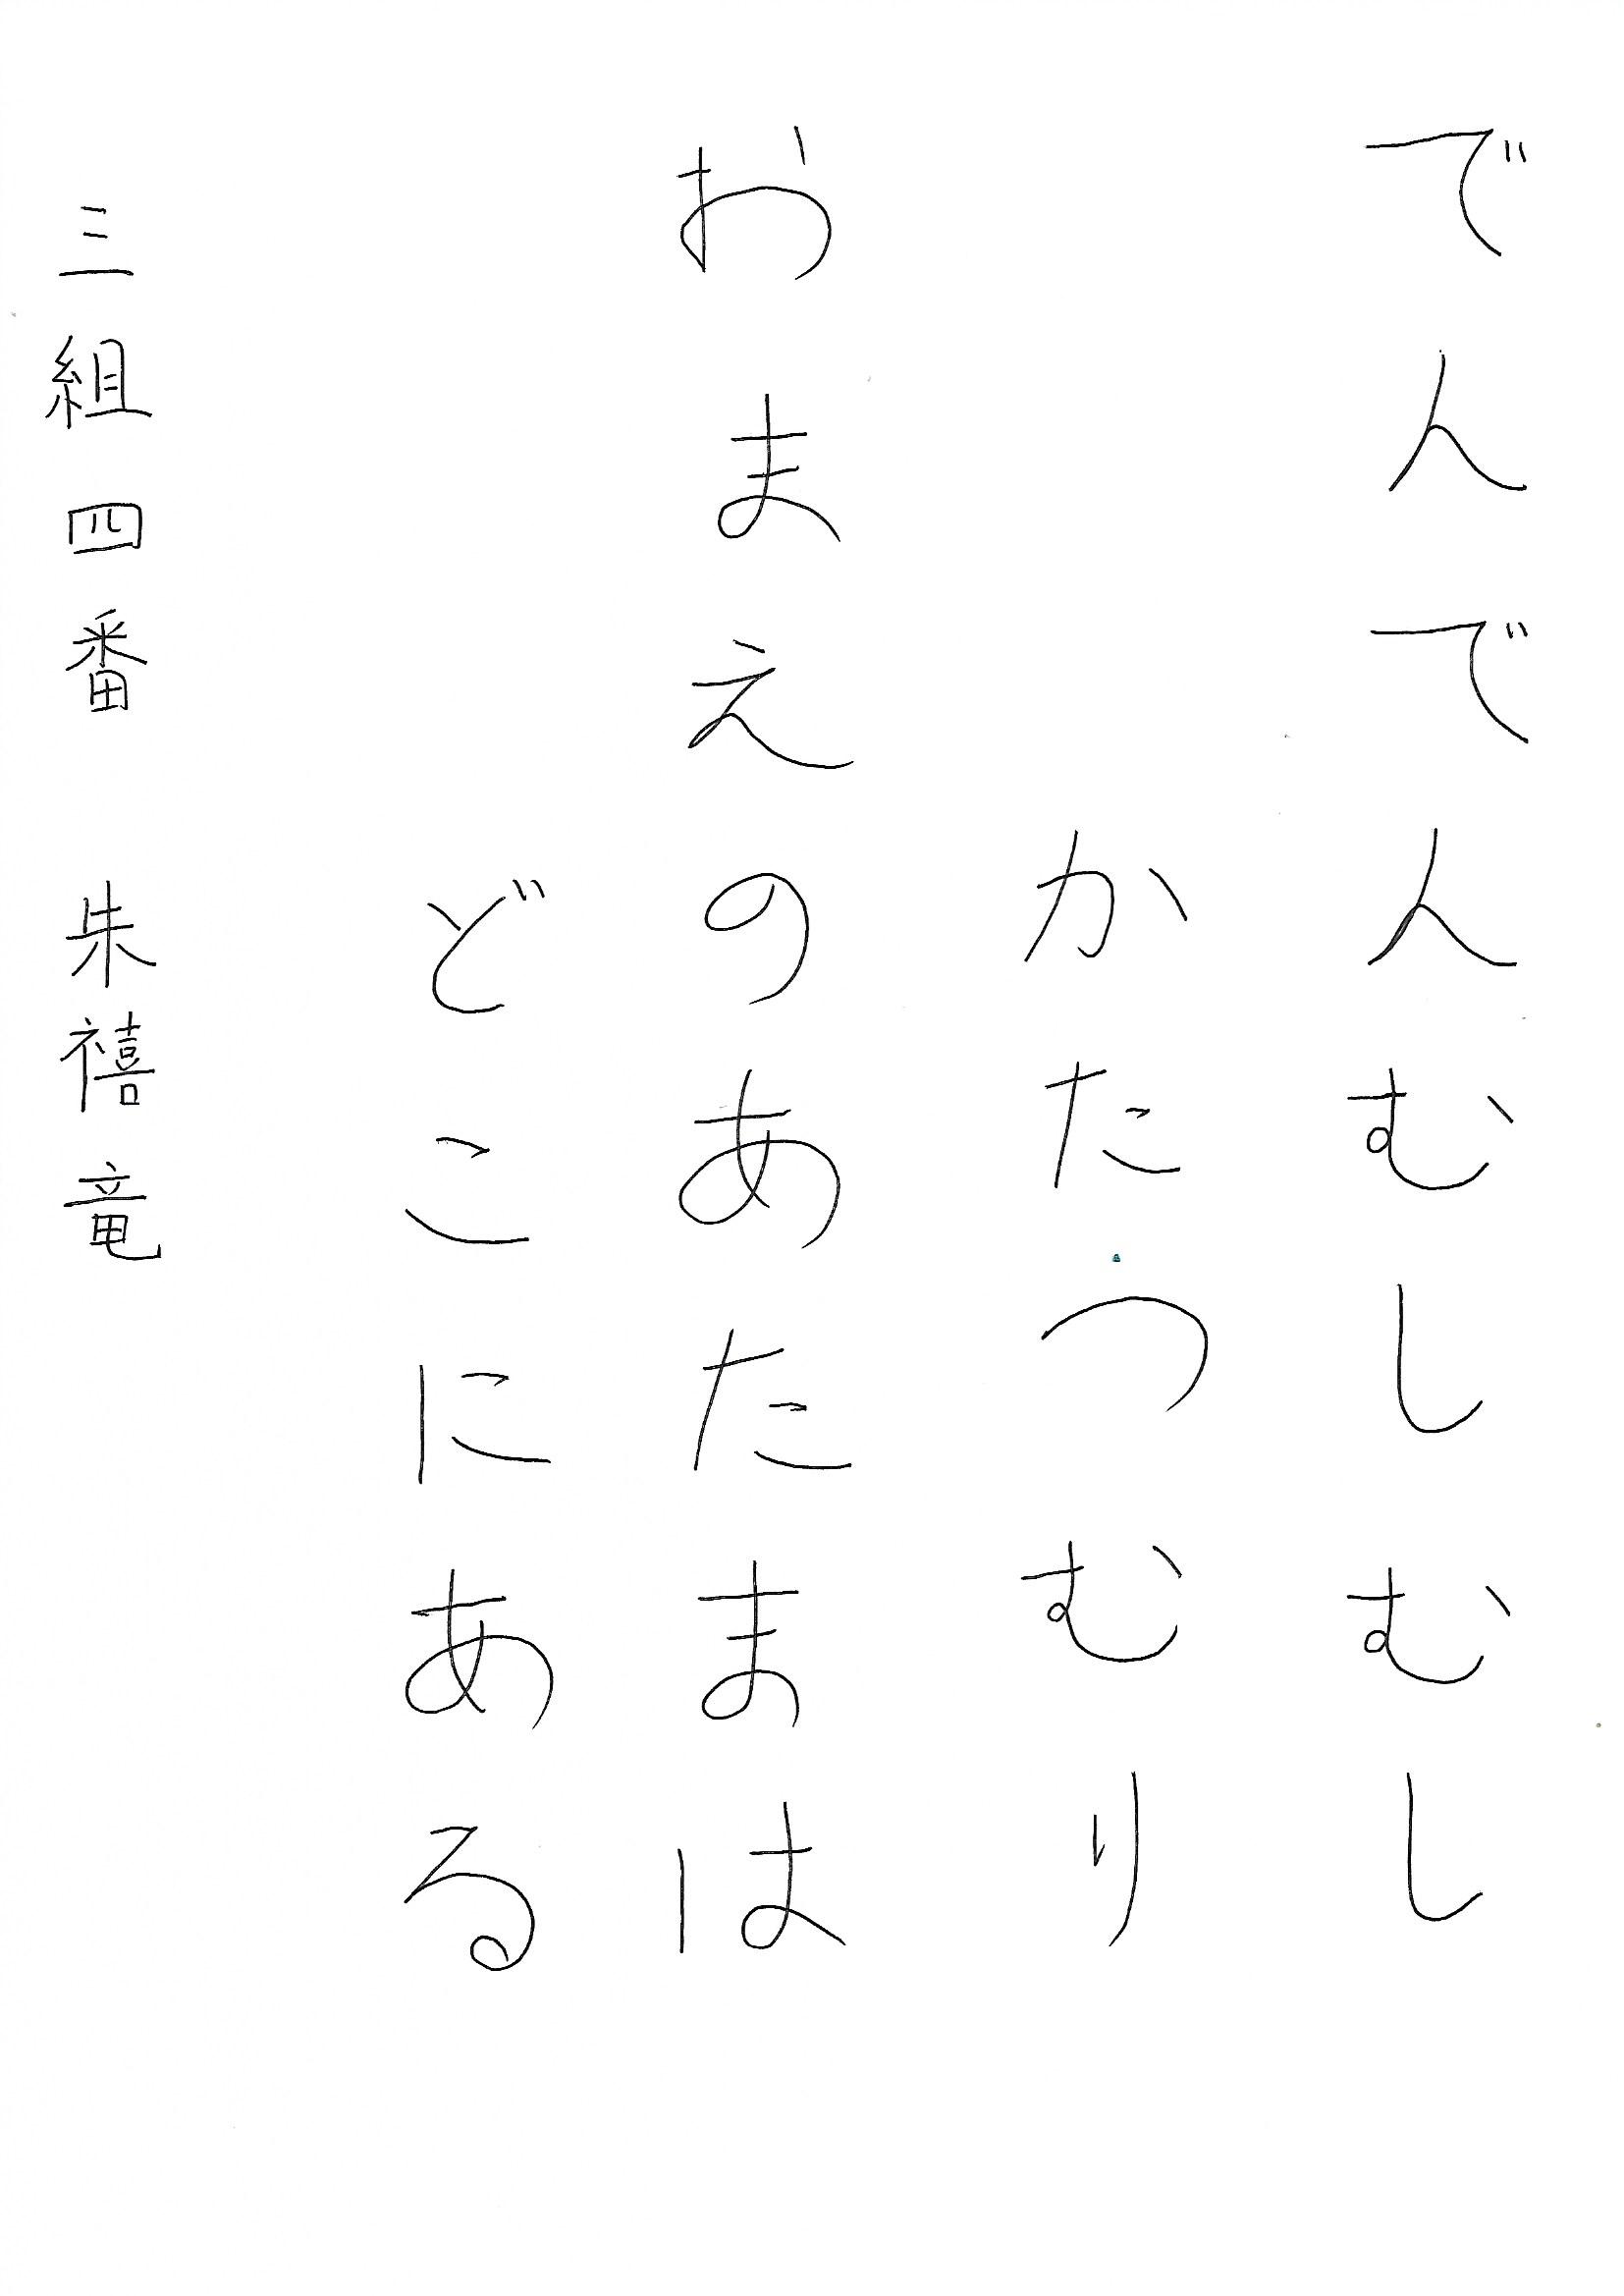 でんでんむしむし
かたつむり
おまえのあたまは
どこにある
三組四番 朱禧竜